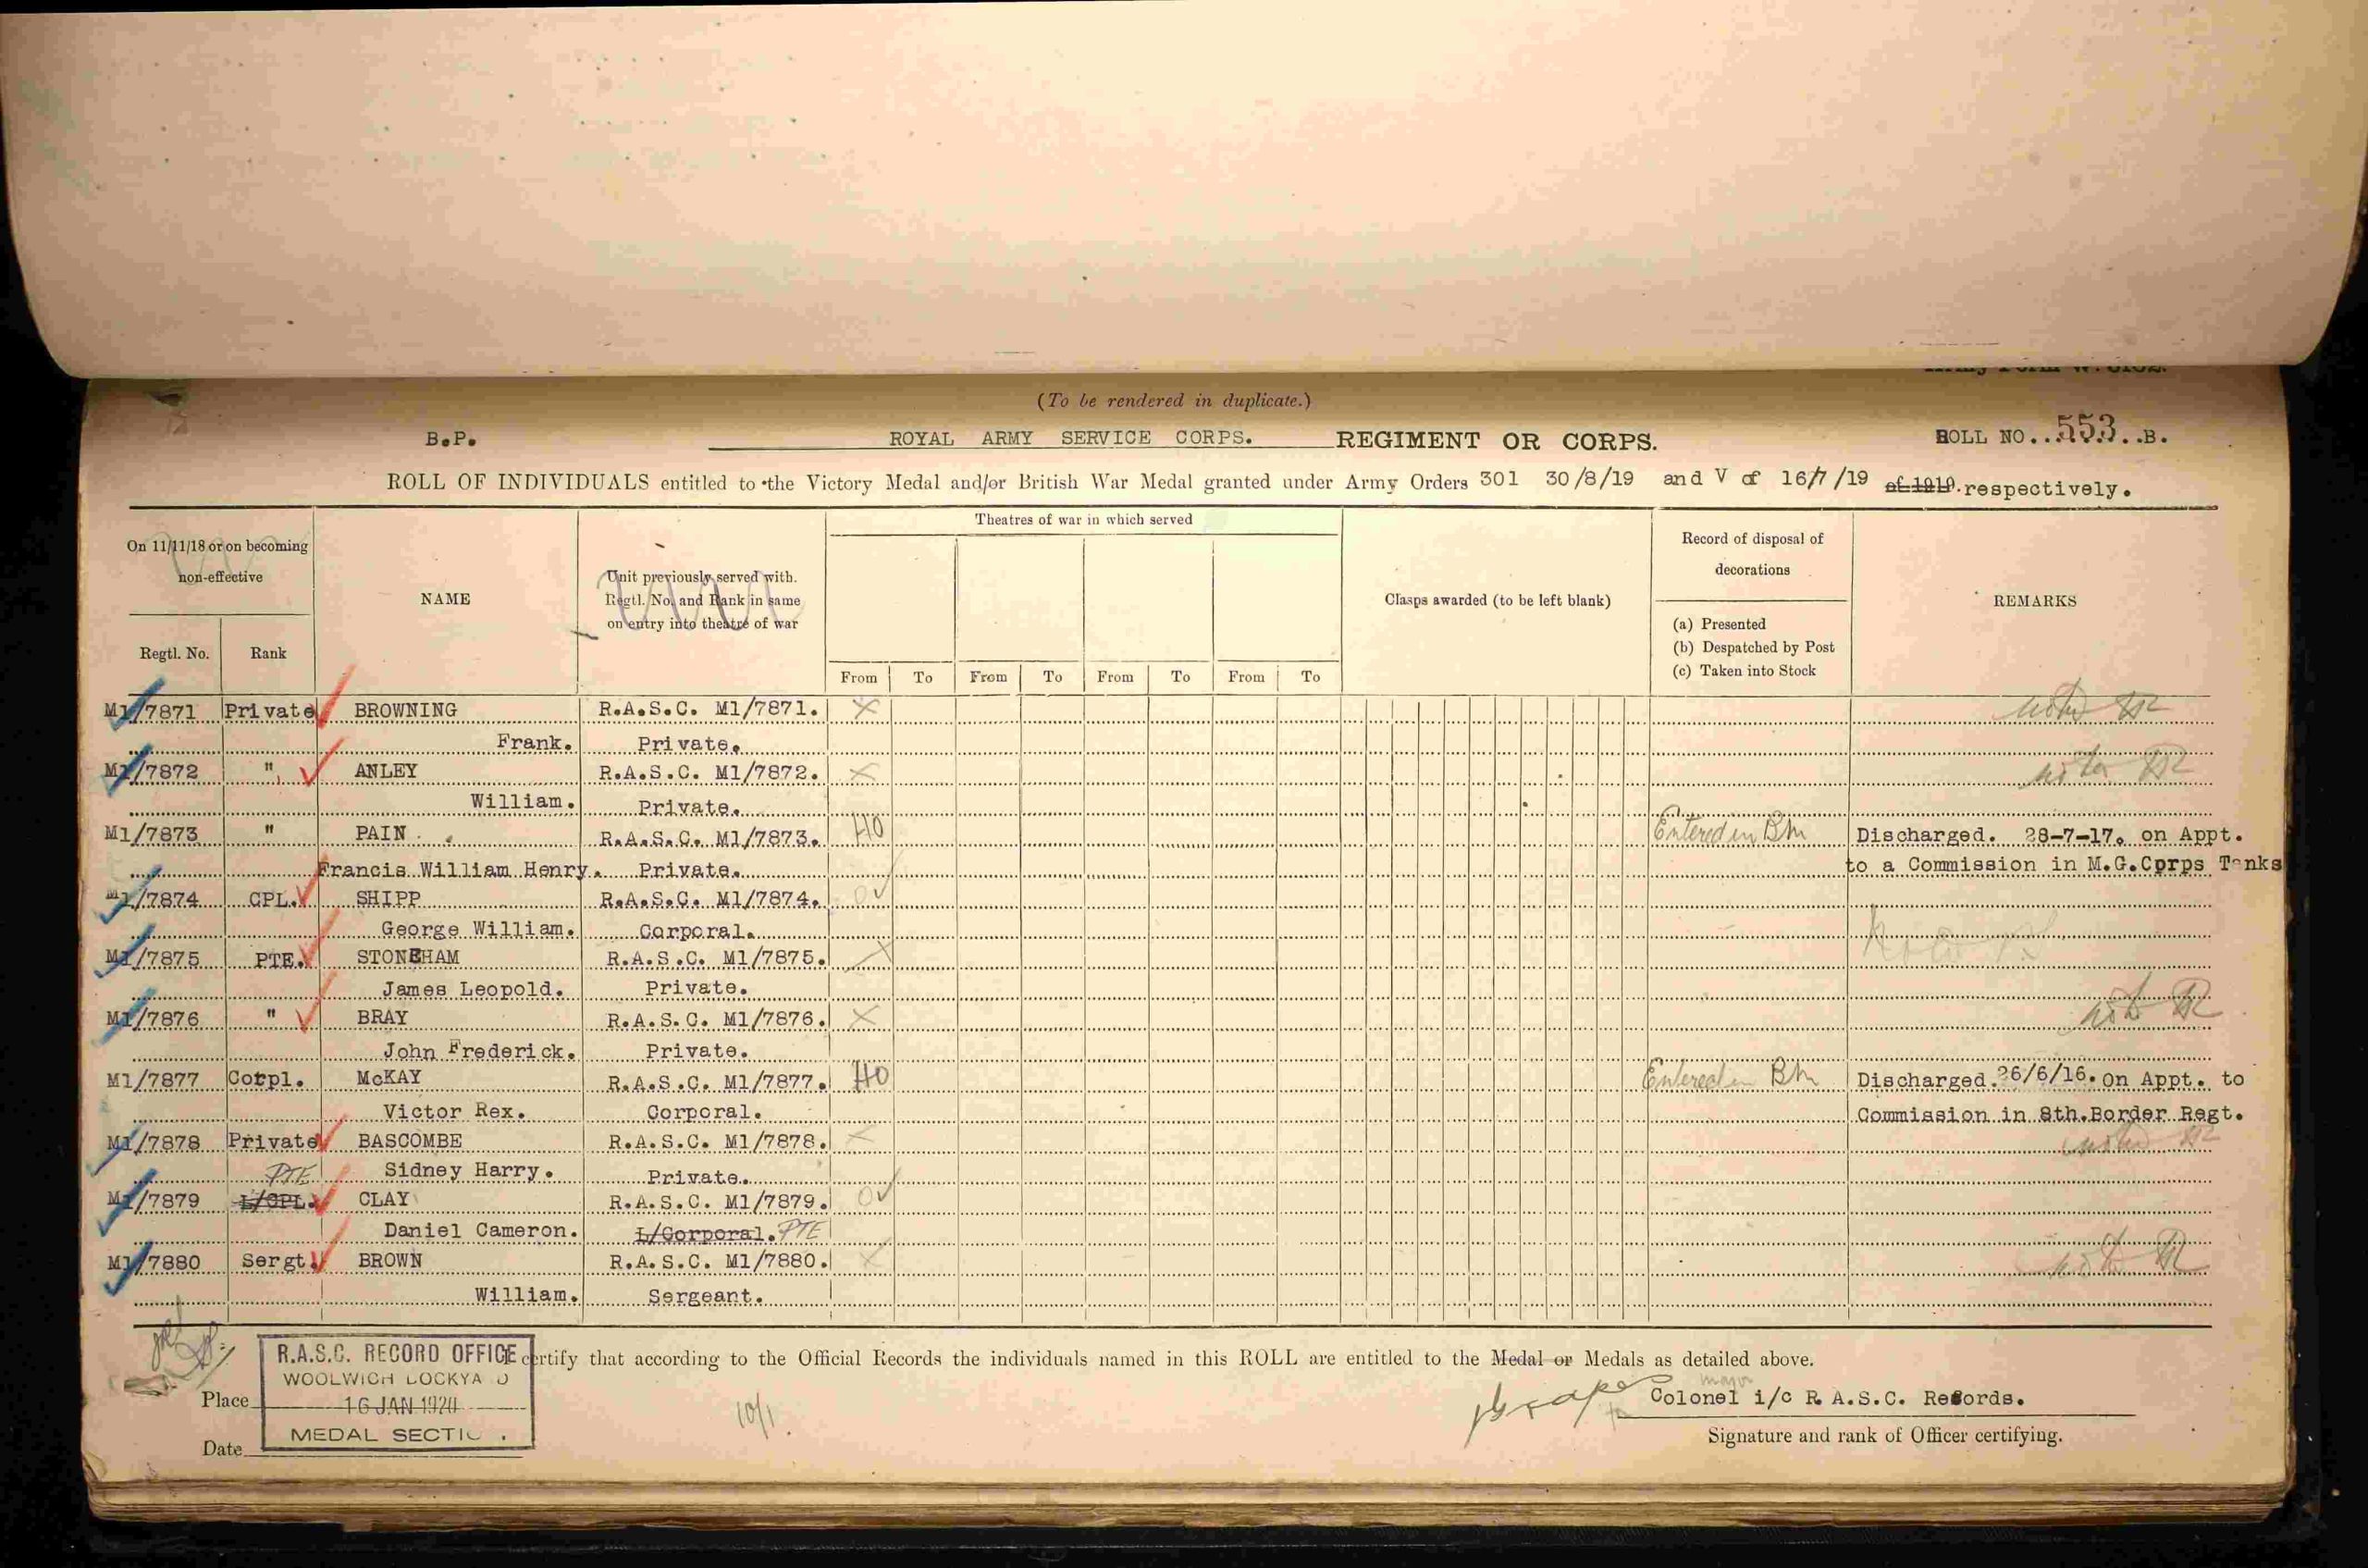 (To be rendered in duplicate.)
B.P. ROYAL ARMY SERVICE CORPS. REGIMENT OR CORPS. ROLL NO...553...B.
ROLL OF INDIVIDUALS entitled to the Victory Medal and/or British War Medal granted under Army Orders 301 30/8/19 and V of 16/7/19 of 1919. respectively.
Theatres of war in which served
On 11/11/18 or on becoming non-effective
NAME
Unit previously served with. Regtl. No. and Rank in same on entry into theatre of war
Clasps awarded (to be left blank)
Record of disposal of decorations
(a) Presented
(b) Despatched by Post
(c) Taken into Stock
REMARKS
Regtl. No. Rank
From To From To From To From To
M1/7871 Private BROWNING R.A.S.C. M1/7871. X noted
Frank. Private.
M1/7872 " ANLEY R.A.S.C. M1/7872. X noted
William. Private.
M1/7873 " PAIN R.A.S.C. M1/7873. HO Entered in Bm Discharged. 28-7-17. on Appt.
Francis William Henry. Private. to a Commission in M.G.Corps Tanks
M1/7874 CPL. SHIPP R.A.S.C. M1/7874. O
George William. Corporal.
M1/7875 PTE. STONEHAM R.A.S.C. M1/7875. X
James Leopold. Private.
M1/7876 " BRAY R.A.S.C. M1/7876. X noted
John Frederick. Private.
M1/7877 Corpl. McKAY R.A.S.C. M1/7877. HO Entered in Bm Discharged. 26/6/16. On Appt. to
Victor Rex. Corporal. Commission in 8th.Border Regt.
M1/7878 Private BASCOMBE R.A.S.C. M1/7878. X noted
PTE Sidney Harry. Private.
M1/7879 L/CPL. CLAY R.A.S.C. M1/7879. O
Daniel Cameron. L/Corporal. PTE
M1/7880 Sergt. BROWN R.A.S.C. M1/7880. X noted
William. Sergeant.
R.A.S.C. RECORD OFFICE
I certify that according to the Official Records the individuals named in this ROLL are entitled to the Medal or Medals as detailed above.
WOOLWICH DOCKYA D
major
Place 16 JAN 1920 10/1 Colonel i/c R.A.S.C. Records.
MEDAL SECTI .
Date Signature and rank of Officer certifying.